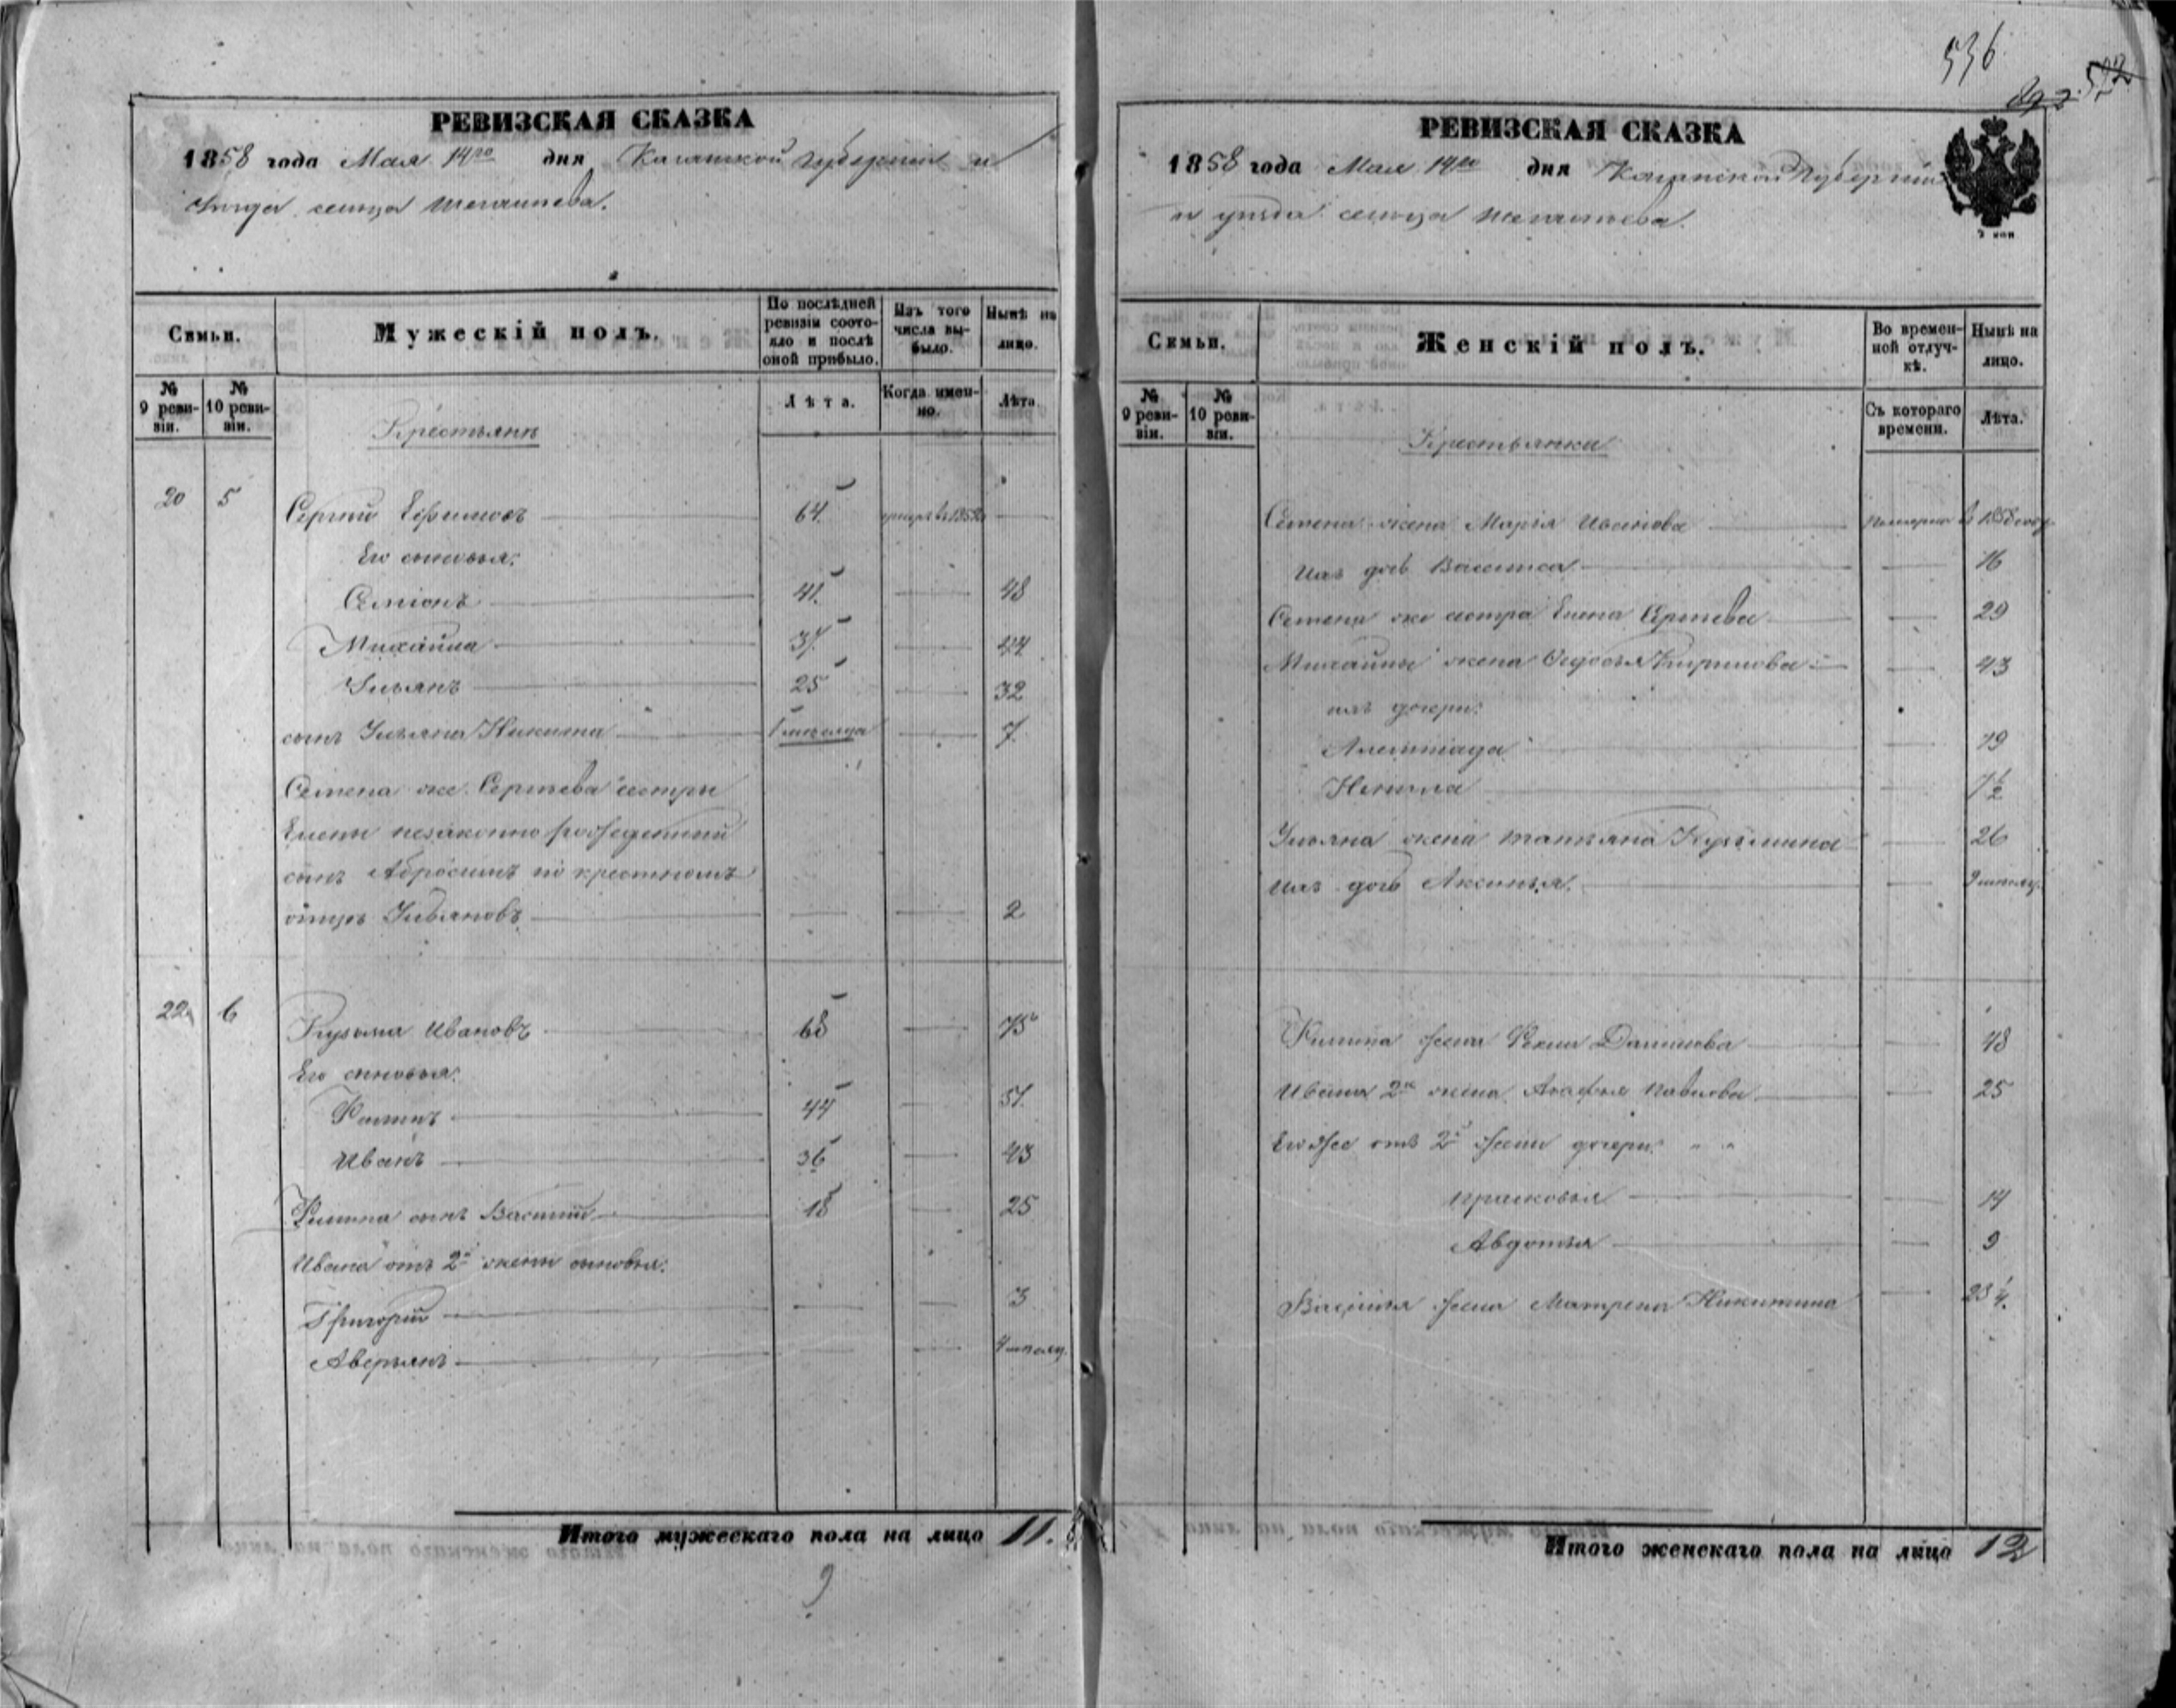 536
РЕВИЗСКАЯ СКАЗКА
1858 года Мая 14го дня Казанской Губернии и
Уезда сельца Шеланшева.
Симьи.
Мужескій полъ.
По послѣдней ревизіи состояло и послѣ оной прибыло.
Изъ того числа выбыло.
Нынѣ на лицо.
№ 9 ревизіи.
№ 10 ревизіи.
Лѣта.
Когда именно.
Лѣта
Крестьяне
20 5 Сергѣй Ефимовъ 64 умеръ въ 1852
Его сыновья:
Семіонъ 41. 48
Михайла 37 44
Ульянъ 25 32
сынъ Ульяна Никита 7.
Семена же Сергѣева сестры
Елены незаконно рожденный
сынъ Абросимъ по крестномъ
отцѣ Ульяновъ 2
22 6 Кузьма Ивановъ 68 75
Его сыновья:
Филипъ 44 51.
Иванъ 36 43
Филипа сынъ Василий 18 25
Ивана отъ 2й жены сыновья:
Григорій 3
Аверьянъ
Итого мужескаго пола на лицо 11.
9
РЕВИЗСКАЯ СКАЗКА
1858 года Мая 14го дня Казанской Губерніи
и уѣзда сельца
2 коп
Симьи.
Женскій полъ.
Во временной отлучкѣ.
Нынѣ на лицо.
№ 9 ревизіи.
№ 10 ревизіи.
Съ котораго времени.
Лѣта.
Крестьянки
Семена жена Марья Иванова
ихъ дочь Василиса 16
Семена же сестра Елена Сергѣева 29
Михайлы жена Федосья Кирилова 43
ихъ дочери:
19
Ненила 1/2
Ульяна жена Татьяна Кузьмина 26
ихъ дочь Аксинья.
Филипа жена Данилова 48
Ивана 2я жена Агафья Павлова 25
Его же отъ 2й жены дочери:
Прасковья 14
Авдотья 9
Василья жена Матрена Никитина 23 1/4.
Итого женскаго пола на лицо 12